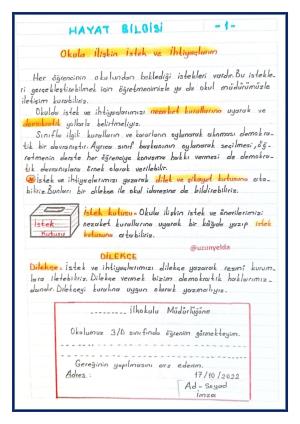 HAYAT BİLGİSİ -1-
Okula ilişkin İstek ve İhtiyaçlarım
Her öğrencinin okulundan beklediği istekleri vardır. Bu istekle-
ri gerçekleştirebilmek için öğretmenimizle ya da okul müdürümüzle
iletişim kurabiliriz.
Okulda istek ve ihtiyaçlarımızı nezaket kurallarına uyarak ve
demokratik yollarla belirtmeliyiz.
Sınıfla ilgili kuralların ve kararların oylanarak alınması demokra-
tik bir davranıştır. Ayrıca sınıf başkanının oylanarak seçilmesi, öğ-
retmenin derste her öğrenciye konuşma hakkı vermesi de demokra-
tik davranışlara örnek olarak verilebilir.
İstek ve ihtiyaçlarımızı yazarak dilek ve şikayet kutusuna ata-
biliriz. Bunları bir dilekçe ile okul idaresine de bildirebiliriz.
İstek
Kutusu
İstek kutusu: Okula ilişkin istek ve önerilerimizi
nezaket kurallarına uyarak bir kâğıda yazıp istek
kutusuna atabiliriz.
@uzunyelda
DİLEKÇE
Dilekçe: İstek ve ihtiyaçlarımızı dilekçe yazarak resmî kurum-
lara iletebiliriz. Dilekçe vermek bizim demokratik haklarımız-
dandır. Dilekçeyi kuralına uygun olarak yazmalıyız.
İlkokulu Müdürlüğüne
Okulunuz 3/D sınıfında öğrenim görmekteyim.
Gereğinin yapılmasını arz ederim.
Adres: 17/10/2022
Ad-Soyad
İmza